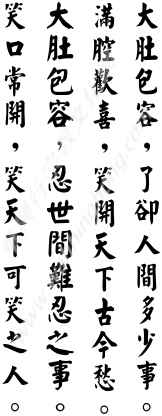 大肚包容，了卻人間多少事
滿腔歡喜，笑開天下古今愁。
大肚包容，忍世間難忍之事。
笑口常開，笑天下可笑之人。